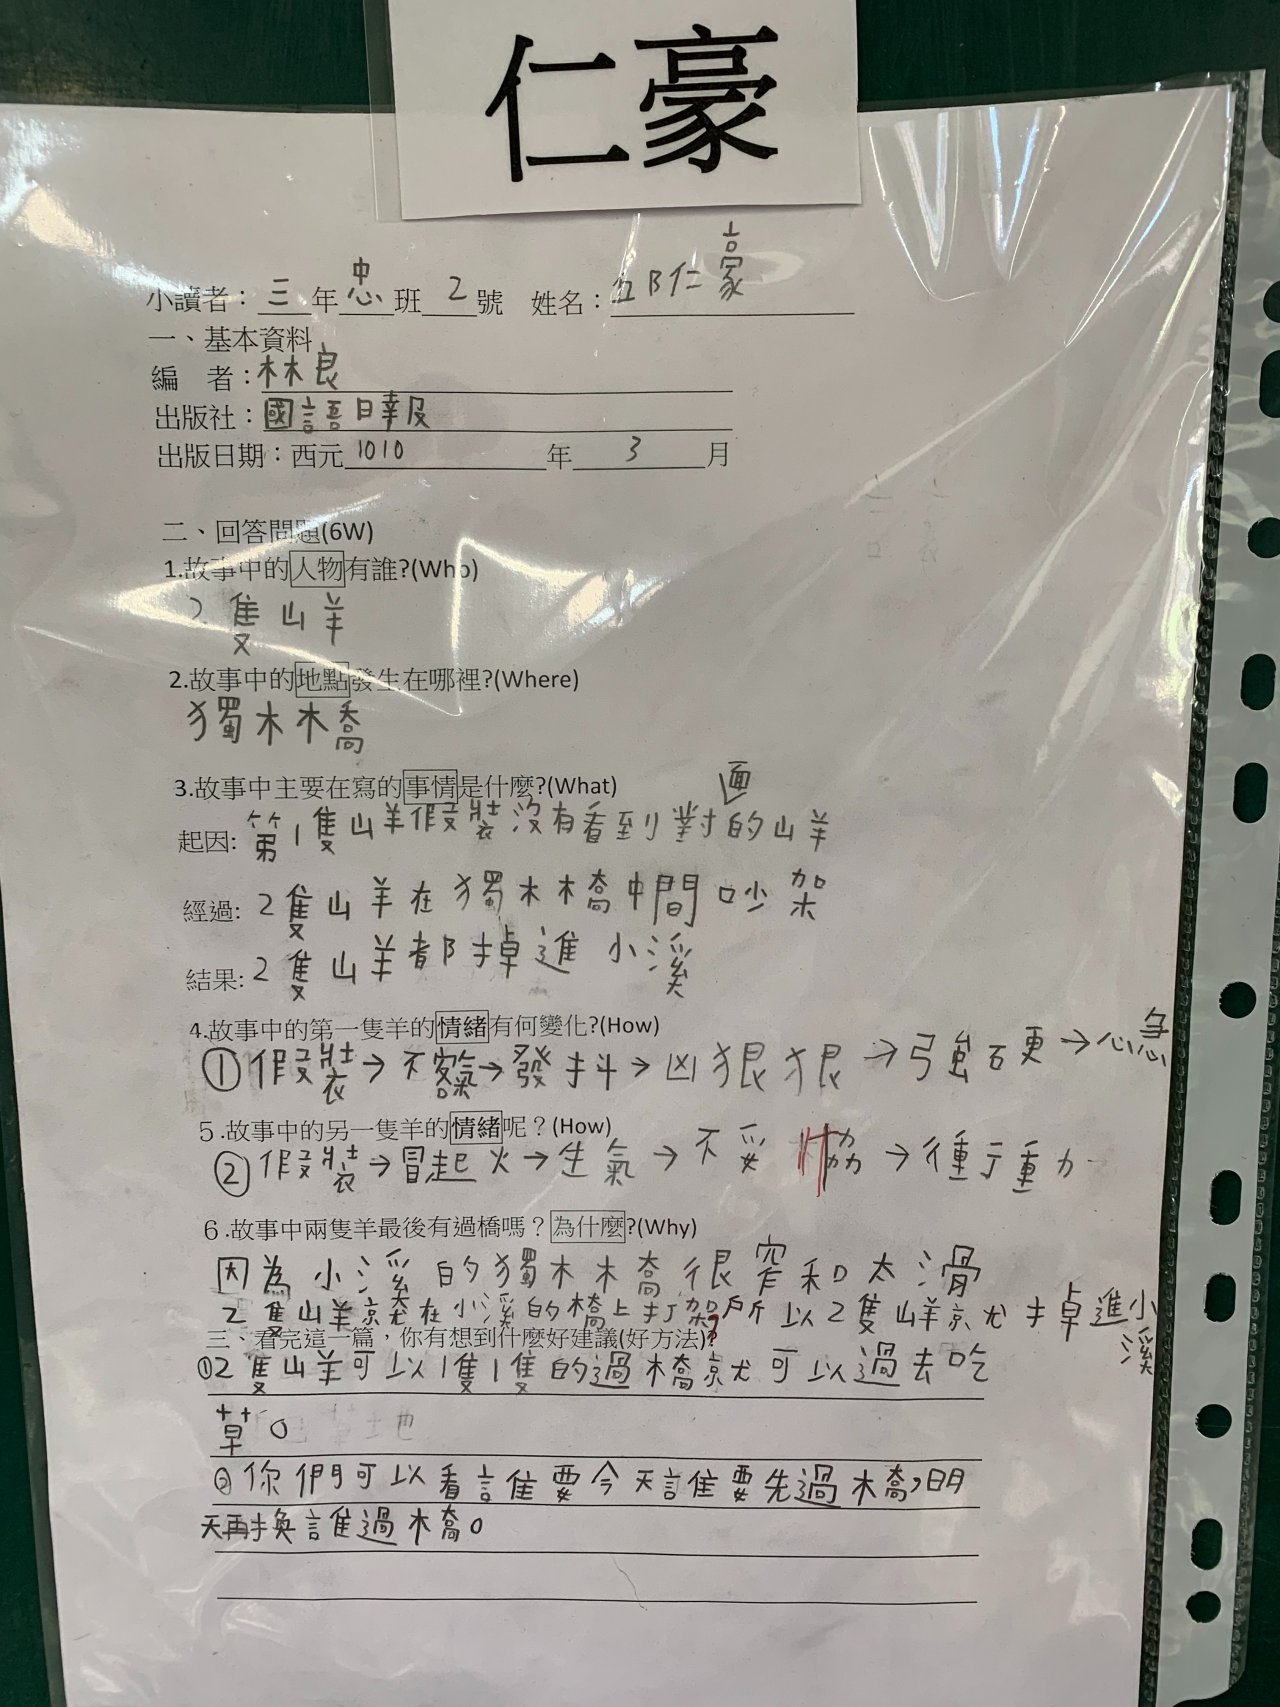 仁豪
小讀者：三年忠班2號 姓名：邱仁豪
一、基本資料
編 者：林良
出版社：國語日報
出版日期：西元1010年3月
二、回答問題(6W)
1.故事中的人物有誰?(Who)
2隻山羊
2.故事中的地點發生在哪裡?(Where)
獨木橋
3.故事中主要在寫的事情是什麼?(What)
起因: 第1隻山羊假裝沒有看到對面的山羊
經過: 2隻山羊在獨木橋中間吵架
結果: 2隻山羊都掉進小溪
4.故事中的第一隻羊的情緒有何變化?(How)
①假裝→不客氣→發抖→凶狠狠→強硬→心急
5.故事中的另一隻羊的情緒呢？(How)
②假裝→冒起火→生氣→不妥協→衝動
6.故事中兩隻羊最後有過橋嗎？為什麼?(Why)
因為小溪的獨木橋很窄和太滑
2隻山羊就在小溪的橋上打架所以2隻山羊就掉進小溪
三、看完這一篇，你有想到什麼好建議(好方法)?
①2隻山羊可以1隻1隻的過橋就可以過去吃
草。
②你們可以看誰要今天誰要先過橋，明
天再換誰過橋。